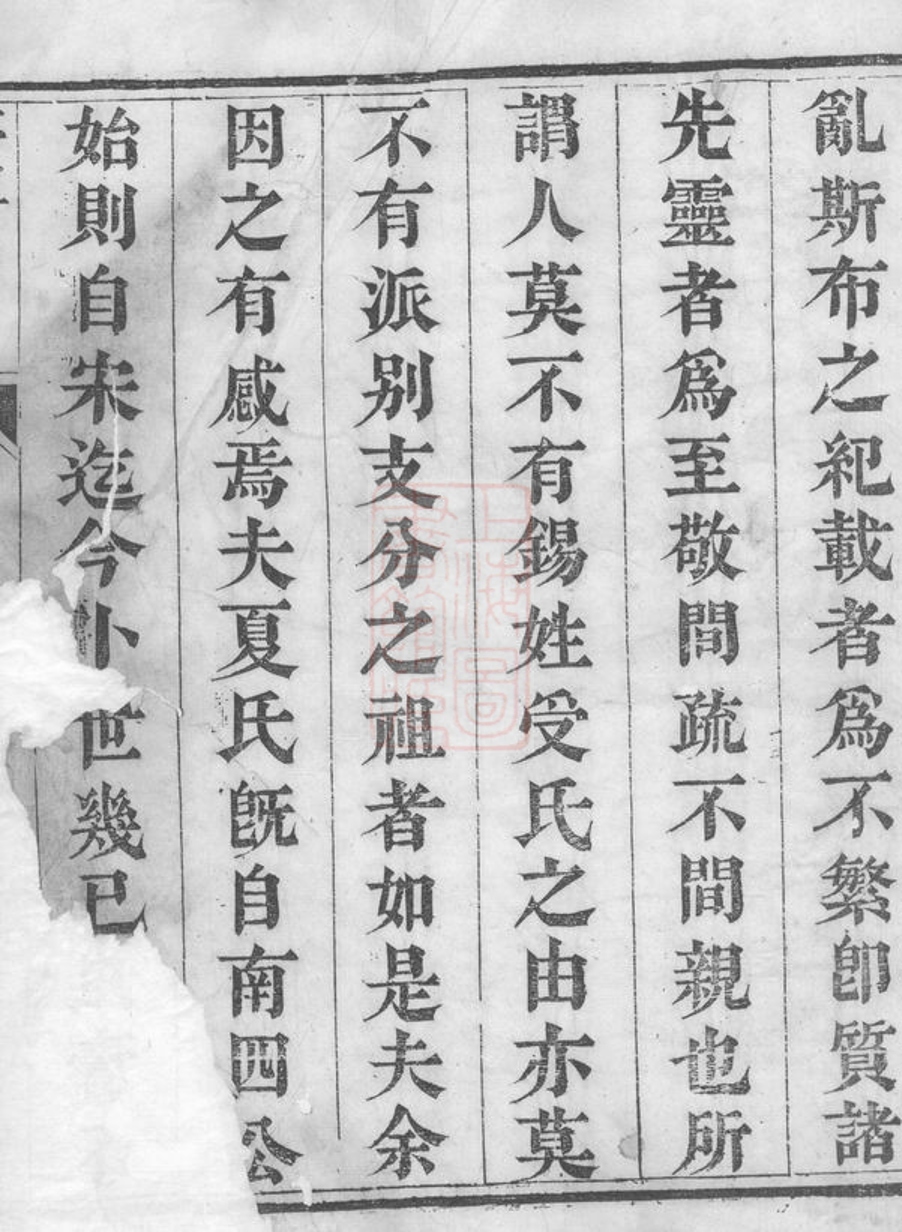 亂斯布之紀載者爲不繁卽質諸
先靈者爲至敬間疏不間親也所
謂人莫不有錫姓受氏之由亦莫
不有派别支分之祖者如是夫余
因之有感焉夫夏氏旣自南四公
始則自宋迄今卜世幾已
上海圖